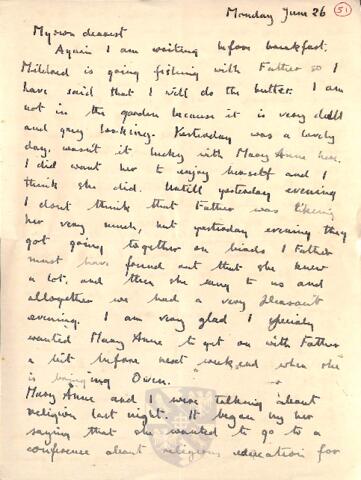 Monday June 26 (51)
My own dearest
Again I am writing before breakfast.
Mildred is going fishing with Father so I
have said that I will do the butter. I am
not in the garden because it is very dull
and grey looking. Yesterday was a lovely
day, wasn't it lucky with Mary Anne here.
I did want her to enjoy herself and I
think she did. Untill yesterday evening
I dont think that Father was liking
her very much, but yesterday evening they
got going together on birds & Father
must have found out that she knew
a lot, and then she sang to us and
alltogether we had a very pleasant
evening. I am very glad I specialy
wanted Mary Anne to get on with Father
a bit before next week end when she
is bringing Owen.
Mary Anne and I were talking about
religion last night. It began by her
saying that she wanted to go to a
conference about religious education for